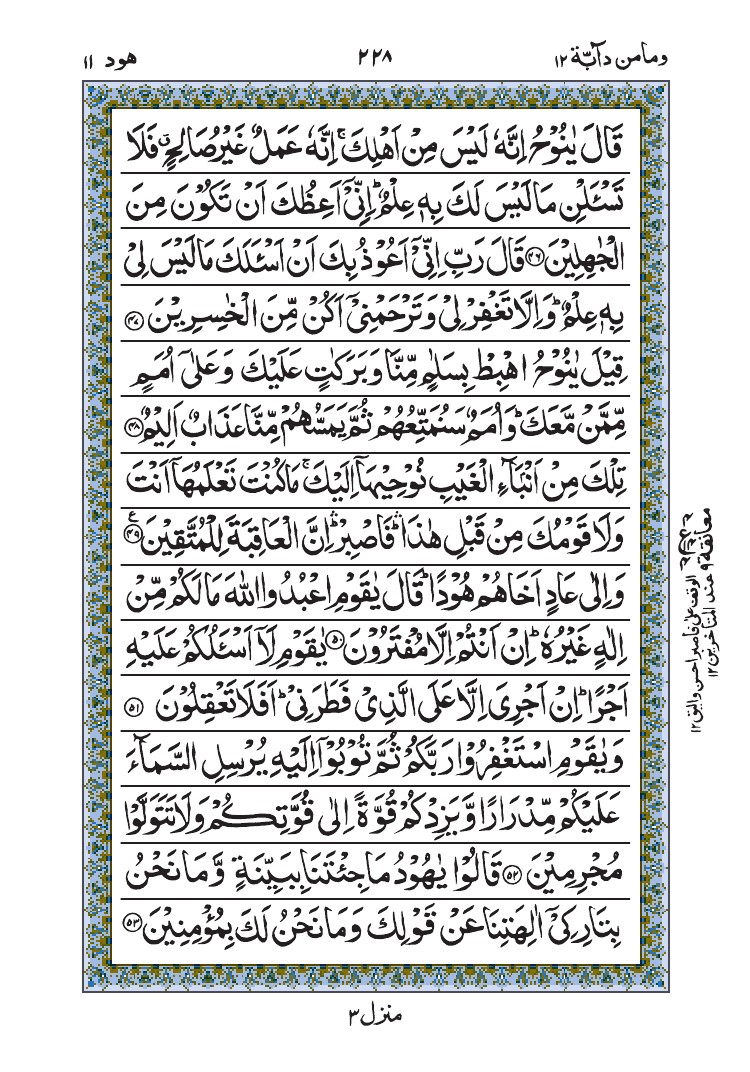 ومامن دآبّة ١٢
٢٢٨
هود ١١
قَالَ يٰنُوْحُ اِنَّهٗ لَيْسَ مِنْ اَهْلِكَ ۚ اِنَّهٗ عَمَلٌ غَيْرُ صَالِحٍ ۖ فَلَا
تَسْـَٔلْنِ مَا لَيْسَ لَكَ بِهٖ عِلْمٌ ؕ اِنِّيْٓ اَعِظُكَ اَنْ تَكُوْنَ مِنَ
الْجٰهِلِيْنَ ﴿۴۶﴾ قَالَ رَبِّ اِنِّيْٓ اَعُوْذُ بِكَ اَنْ اَسْـَٔلَكَ مَا لَيْسَ لِيْ
بِهٖ عِلْمٌ ؕ وَاِلَّا تَغْفِرْ لِيْ وَتَرْحَمْنِيْٓ اَكُنْ مِّنَ الْخٰسِرِيْنَ ﴿۴۷﴾
قِيْلَ يٰنُوْحُ اهْبِطْ بِسَلٰمٍ مِّنَّا وَبَرَكٰتٍ عَلَيْكَ وَعَلٰٓى اُمَمٍ
مِّمَّنْ مَّعَكَ ؕ وَاُمَمٌ سَنُمَتِّعُهُمْ ثُمَّ يَمَسُّهُمْ مِّنَّا عَذَابٌ اَلِيْمٌ ﴿۴۸﴾
تِلْكَ مِنْ اَنْۢبَآءِ الْغَيْبِ نُوْحِيْهَآ اِلَيْكَ ۚ مَا كُنْتَ تَعْلَمُهَآ اَنْتَ
وَلَا قَوْمُكَ مِنْ قَبْلِ هٰذَا ۛؕ فَاصْبِرْ ۛؕ اِنَّ الْعَاقِبَةَ لِلْمُتَّقِيْنَ ﴿۴۹﴾ ع
وَاِلٰى عَادٍ اَخَاهُمْ هُوْدًا ؕ قَالَ يٰقَوْمِ اعْبُدُوا اللّٰهَ مَا لَكُمْ مِّنْ
اِلٰهٍ غَيْرُهٗ ؕ اِنْ اَنْتُمْ اِلَّا مُفْتَرُوْنَ ﴿۵۰﴾ يٰقَوْمِ لَآ اَسْـَٔلُكُمْ عَلَيْهِ
اَجْرًا ؕ اِنْ اَجْرِيَ اِلَّا عَلَى الَّذِيْ فَطَرَنِيْ ؕ اَفَلَا تَعْقِلُوْنَ ﴿۵۱﴾
وَيٰقَوْمِ اسْتَغْفِرُوْا رَبَّكُمْ ثُمَّ تُوْبُوْٓا اِلَيْهِ يُرْسِلِ السَّمَآءَ
عَلَيْكُمْ مِّدْرَارًا وَّيَزِدْكُمْ قُوَّةً اِلٰى قُوَّتِكُمْ وَلَا تَتَوَلَّوْا
مُجْرِمِيْنَ ﴿۵۲﴾ قَالُوْا يٰهُوْدُ مَا جِئْتَنَا بِبَيِّنَةٍ وَّمَا نَحْنُ
بِتَارِكِيْٓ اٰلِهَتِنَا عَنْ قَوْلِكَ وَمَا نَحْنُ لَكَ بِمُؤْمِنِيْنَ ﴿۵۳﴾
معانقة ٩ عند المتاخرين ١٢
الوقف على فاصبر احسن واليق ١٢
منزل ٣